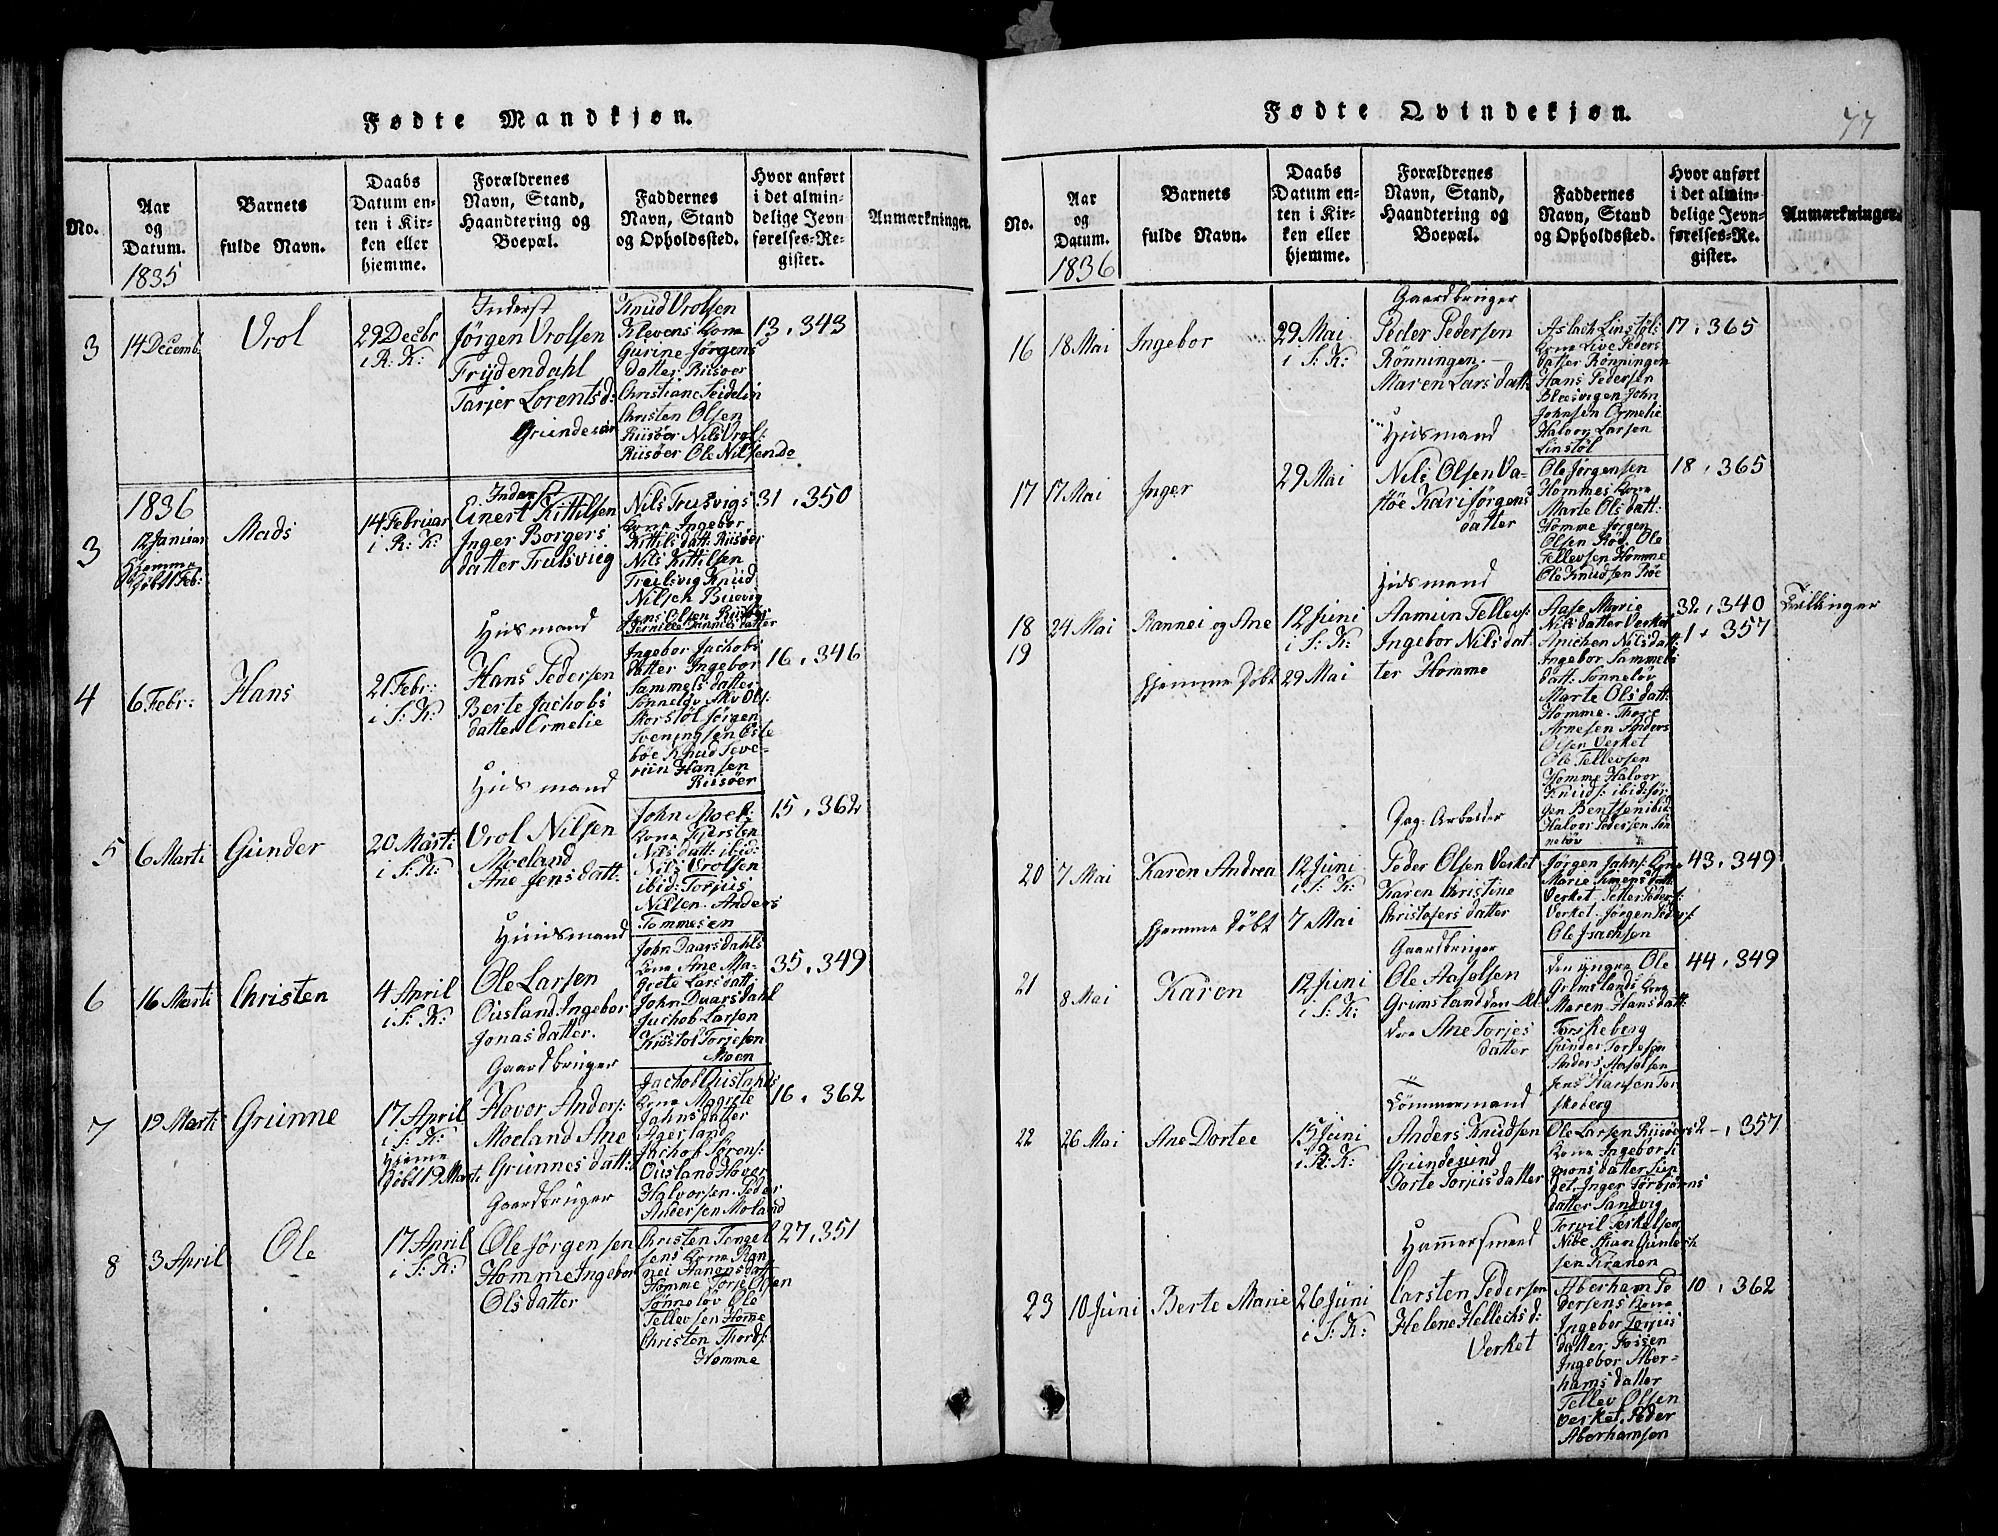 Fødte Mandkjøn.
No.
Aar
og
Datum.
1835
Barnets
fulde Navn.
Daabs
Datum en-
ten i Kir-
ken eller
hjemme.
Forældrenes
Navn, Stand,
Haandtering og
Boepæl.
Faddernes
Navn, Stand
og Opholdssted.
Hvor anført
i det almin-
delige Jevn
førelses-Re-
gister.
Anmærkninger.
3
14 Decemb
Urol
29 Decbr
i R: K:
Inderst
Jørgen Urolsen
Frydendahl
Tarjer Lorentsd:
Knud Urolsen
Klevens Kona
Gurine Jørgens
datter Riisøer
Christiane Seidelin
Christen Olsen
Riisøer Nils Urols:
Riisøer Ole Nilsen do
13, 343
1836
3
12 Januar
Hjemme
døbt 1 Feb:
Mads
14 Februar
i R: K:
Inderst
Einert Kittilsen
Inger Borgers
datter Trulsvig
Nils Trulsvigs
Kona Ingebor
Kittilsdatt: Riisøer
Nils Kittilsen
Trulsvig Knud
Nilsen Buevig
Jens Olsen Riisøer
31, 350
4
6 Febr:
Hans
21 Febr:
i S: K:
Huusmand
Hans Pedersen
Berte Jachobs
datter Ormelie
Ingebor Jachobs
datter Ingebor
Sammelsdatter
Sønneløv
Jørgen
Sveningsen Øste
bøe Knud Seve-
riin Hansen
Riisøer
16, 346
5
6 Marti
Gunder
20 Marti
i S: K:
Huusmand
Urol Nilsen
Moeland
Ane Jensdatt:
John Moel:
Kona Kjersten
Nilsdatt: ibid:
Nils Urolsen
ibid: Torjus
Nilsen. Anders
Tommesen
15, 362
6
16 Marti
Christen
4 April
i S: K:
Huusmand
Ole Larsen
Ousland Ingebor
Jonasdatter.
John Daarsdahls
Kona Ane Ma-
grete Larsdatt:
John Duarsdahl
Jachob Larsen
Kristof Torjesen
Moen
35, 349
7
19 Marti
Grunne
17 April
i S: K:
Hjeme
døbt 19 Marti
Gaardbruger
Hover Anders:
Moeland Ane
Grunnesdatt:
Jachob Ouslands
Kona Magrete
Jahnsdatter
Agerland
Jachob Sørens:
Ousland Hover
Halvorsen. Peder
Andersen Moland
16, 362
8
3 April
Ole
17 April
i S: K:
Gaardbruger
Ole Jørgensen
Homme Ingebor
Olsdatter
Christen Tengel
sens Kona Ran
nei Hanensdatt
Homme Torje Olsen
Sønneløv Ole
Tellevsen Home
Christen Thords:
Homme
27, 351
Fødte Qvindekjøn.
77
No.
Aar
og
Datum.
1836
Barnets
fulde Navn.
Daabs
Datum en-
ten i Kir-
ken eller
hjemme.
Forældrenes
Navn, Stand,
Haandtering og
Boepæl.
Faddernes
Navn, Stand
og Opholdssted.
Hvor anført
i det almin-
delige Jevn-
førelses-Re-
gister.
Anmærkninger.
16
18 Mai
Ingebor
29 Mai
i S: K:
Gaardbruger
Peder Pedersen
Rönningen.
Maren Larsdatt:
Aslach Linstøl:
Kona Live Peders
datter Rönningen
Hans Pedersen
Blæsvigen John
Johnsen Ormelie
Halvor Larsen
Linstøl
17, 365
17
17 Mai
Inger
29 Mai
Huusmand
Nils Olsen Va-
støe Kari Jørgens
datter
Ole Jørgensen
Hommes Kona
Marte Olsdatt:
Homme Jørgen
Olsen Röd. Ole
Tellevsen Homme
Ole Knudsen Röe
18, 365
18
19
24 Mai
Rannei og Ane
hjemme døbt
12 Juni
i S: K:
29 Mai
Huusmand
Aamun Tellevs:
Ingebor Nilsdat
ter Homme
Aase Marie
Nilsdatter Verket
Anichen Nilsdatt:
Ingebor Sammels
datt: Sønneløv
Marte Olsdatt:
Homme. Thore
Arnesen Anders
Olsen Verket
Ole Tellevsen
Homme Halvor
Knuds: ibid: Jør-
gen Bentsen ibid:
Halvor Pedersen Søn
neløv
32, 340
1, 357
Tvillinger
20
7 Mai
Karen Andrea
hjemme døbt
12 Juni
i S: K:
7 Mai
Dag: Arbeider
Peder Olsen Verket
Karen Christine
Christofersdatter
Jørgen Jahns: Kona
Marie Simensdatt:
Verket Petter Peders:
Verket. Jørgen Peders:
Ole Isachsen
43, 349
21
8 Mai
Karen
12 Juni
i S: K:
Gaardbruger
Ole Aaselsen
Grimsland den Æl
dre Ane Torjes
datter
den yngre Ole
Grimslands Kona
Maren Hansdatt:
Torskeberg
Gunder Torjesen
Anders Aaselsen
Jens Hansen Tor
skeberg
44, 349
22
26 Mai
Ane Dortee
15 Juni
i R: K:
Tömmermand
Anders Knudsen
Grundesund
Dorte Torjusdatter
Ole Larsen Riisøers
Kona Ingebor Si
monsdatter Sun
det, Inger Törbjörns
datter Sandvig
Torvil Terkelsen
sen Kranen
2, 357
23
10 Juni
Berte Marie
26 Juni
i S: K:
Hamersmand
Carsten Pedersen
Helene Hellechsd:
Verket
Aberham Pe
dersens Kona
Ingebor Torjus
datter Fossen
Ingebor Aber-
hamsdatter
Tellev Olsen
Verket, Peder
Aberhamsen
10, 362